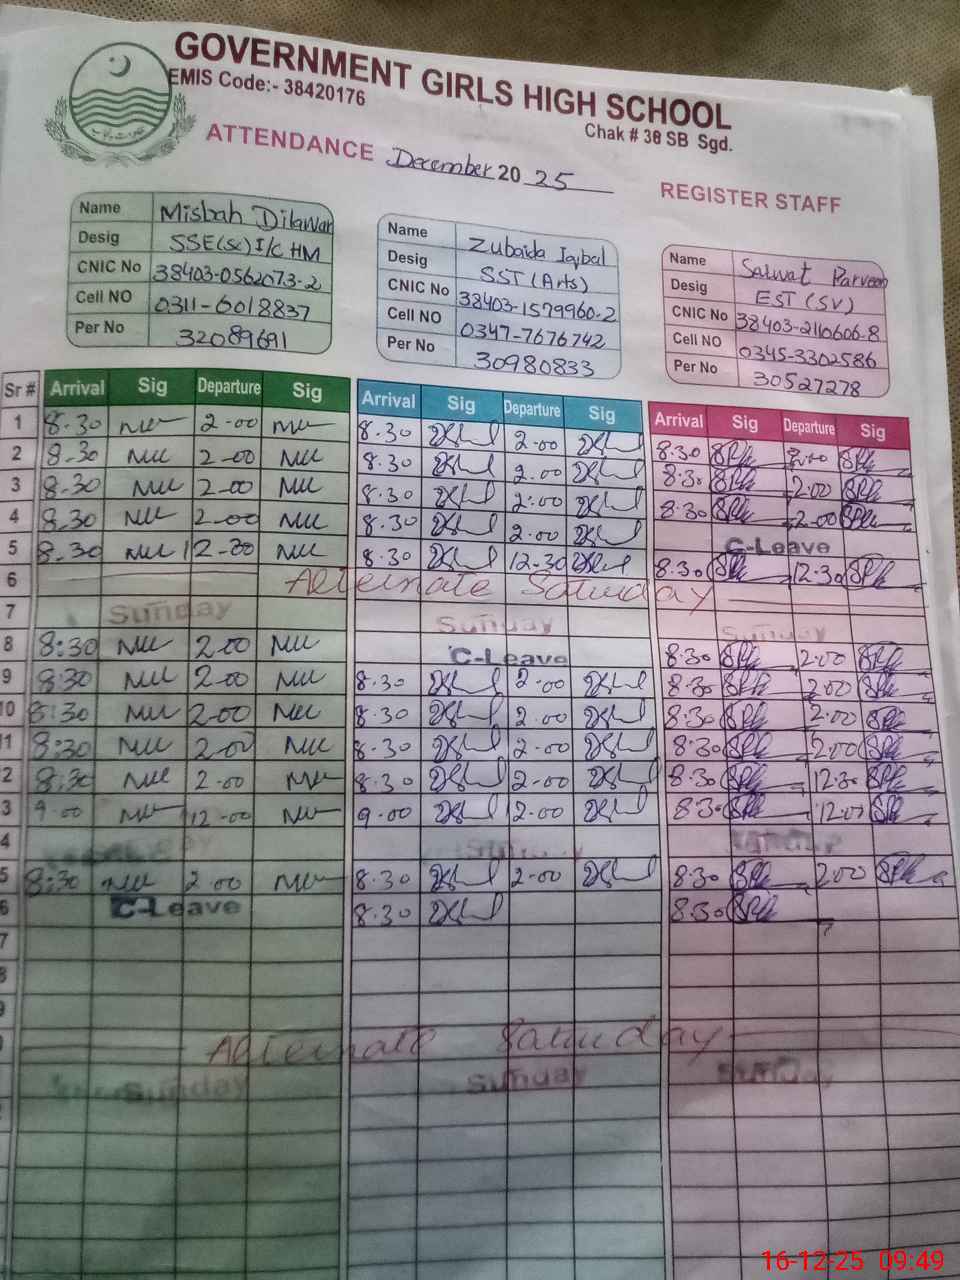 GOVERNMENT GIRLS HIGH SCHOOL
EMIS Code:- 38420176
Chak # 38 SB Sgd.
ATTENDANCE December 20 25 REGISTER STAFF
Name Misbah Dilawar
Desig SSE(Sc) I/C HM
CNIC No 38403-0562073-2
Cell NO 0311-6018837
Per No 32089691
Name Zubaida Iqbal
Desig SST (Arts)
CNIC No 38403-1579960-2
Cell NO 0347-7676742
Per No 30980833
Name Satwat Parveen
Desig EST (SV)
CNIC No 38403-2110606-8
Cell NO 0345-3302586
Per No 30527278
Sr # Arrival Sig Departure Sig Arrival Sig Departure Sig Arrival Sig Departure Sig
1 8.30 2.00 8.30 2.00 8.30 2.00
2 8.30 2.00 8.30 2.00 8.30 2.00
3 8.30 2.00 8.30 2.00 8.30 2.00
4 8.30 2.00 8.30 2.00 C-Leave
5 8.30 12-30 8.30 12-30 8.30 12.30
6 Alternate Saturday
7 Sunday Sunday Sunday
8 8:30 2.00 C-Leave 8.30 2.00
9 8:30 2.00 8.30 2.00 8.30 2.00
10 8:30 2.00 8.30 2.00 8:30 2.00
11 8:30 2.00 8.30 2.00 8:30 2.00
2 8:30 2.00 8.30 2.00 8.30 12.30
3 9.00 12.00 9.00 2.00 8.30 12.00
4 Sunday
5 8:30 2.00 8.30 2.00 8.30 2.00
6 C-Leave 8.30 8.30
7
8
9
Alternate Saturday
Sunday Sunday Sunday
16-12-25 09:49